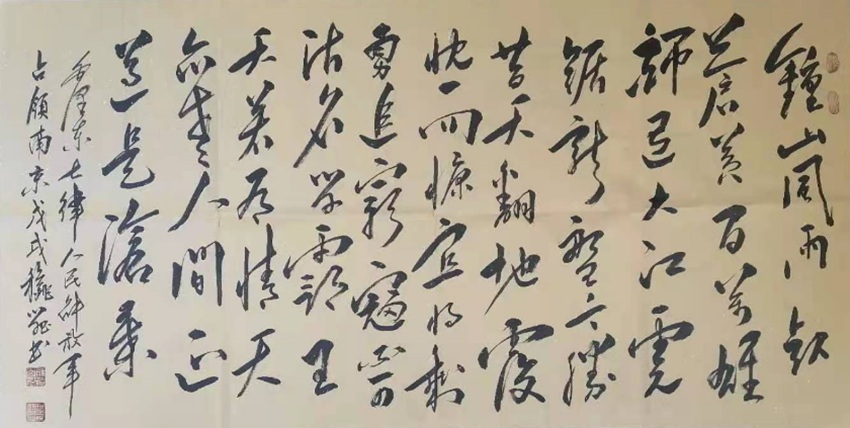 鐘山風雨起
蒼黃百萬雄
師過大江虎
踞龍盤今勝
昔天翻地覆
慨而慷宜將剩
勇追窮寇不可
沽名學霸王
天若有情天
亦老人間正
道是滄桑
毛澤東七律 人民解放軍
占領南京戊戌 書